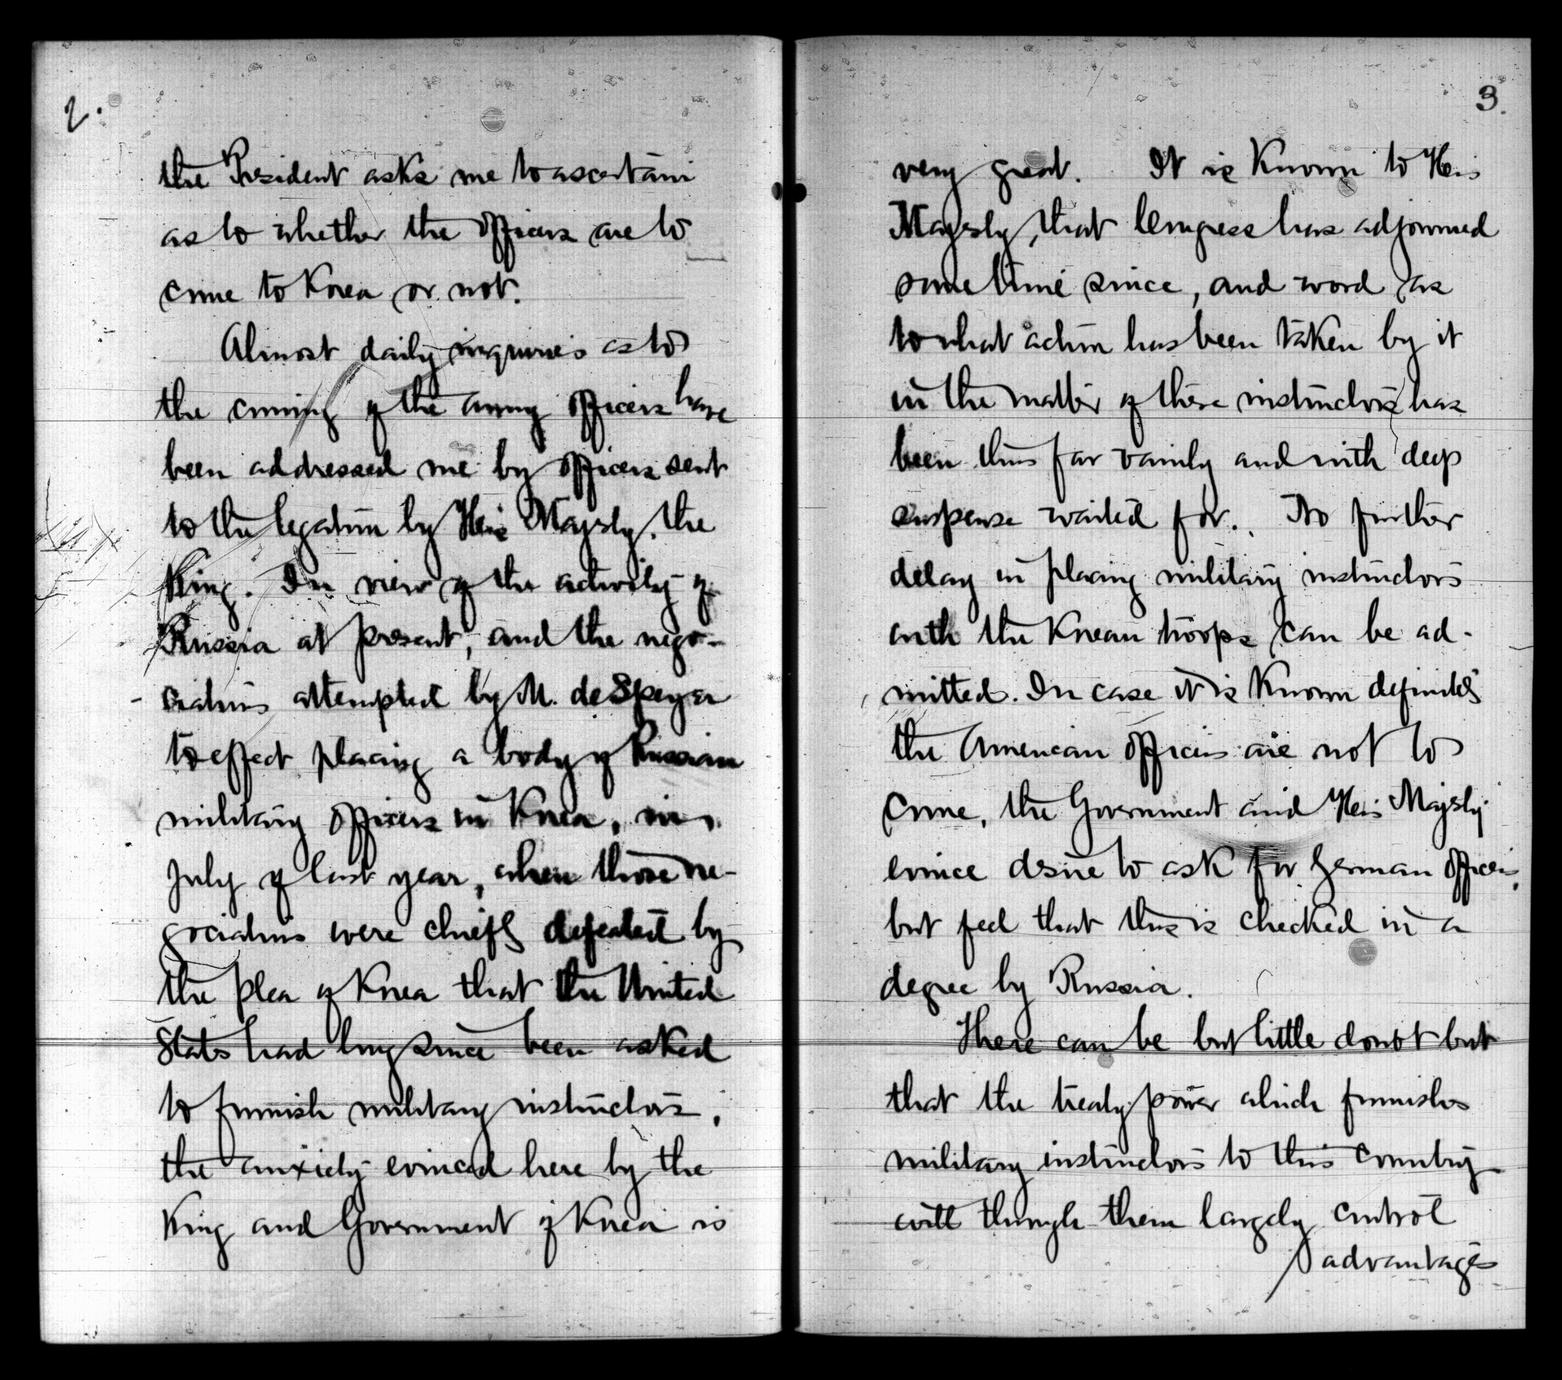 2.
the President asks me to ascertain
as to whether the officers are to
come to Korea or not.
Almost daily inquiries as to
the coming of the army officers have
been addressed me by officers sent
to the legation by His Majesty, the
King. In view of the activity of
Russia at present, and the nego-
ciations attempted by M. de Speyer
to effect placing a body of Russian
military officers in Korea, in
July of last year, when those ne-
gociations were chiefly defeated by
the plea of Korea that the United
States had long since been asked
to furnish military instructors,
the anxiety evinced here by the
King and Government of Korea is
3.
very great. It is known to His
Majesty, that Congress has adjourned
some time since, and word as
to what action has been taken by it
in the matter of these instructors has
been thus far vainly and with deep
suspense waited for. No further
delay in placing military instructors
with the Korean troops can be ad-
mitted. In case it is known definitely
the American officers are not to
come, the Government and His Majesty
evince desire to ask for German officers,
but feel that this is checked in a
degree by Russia.
There can be but little doubt but
that the treaty power which furnishes
military instructors to this country
will through them largely control
advantages